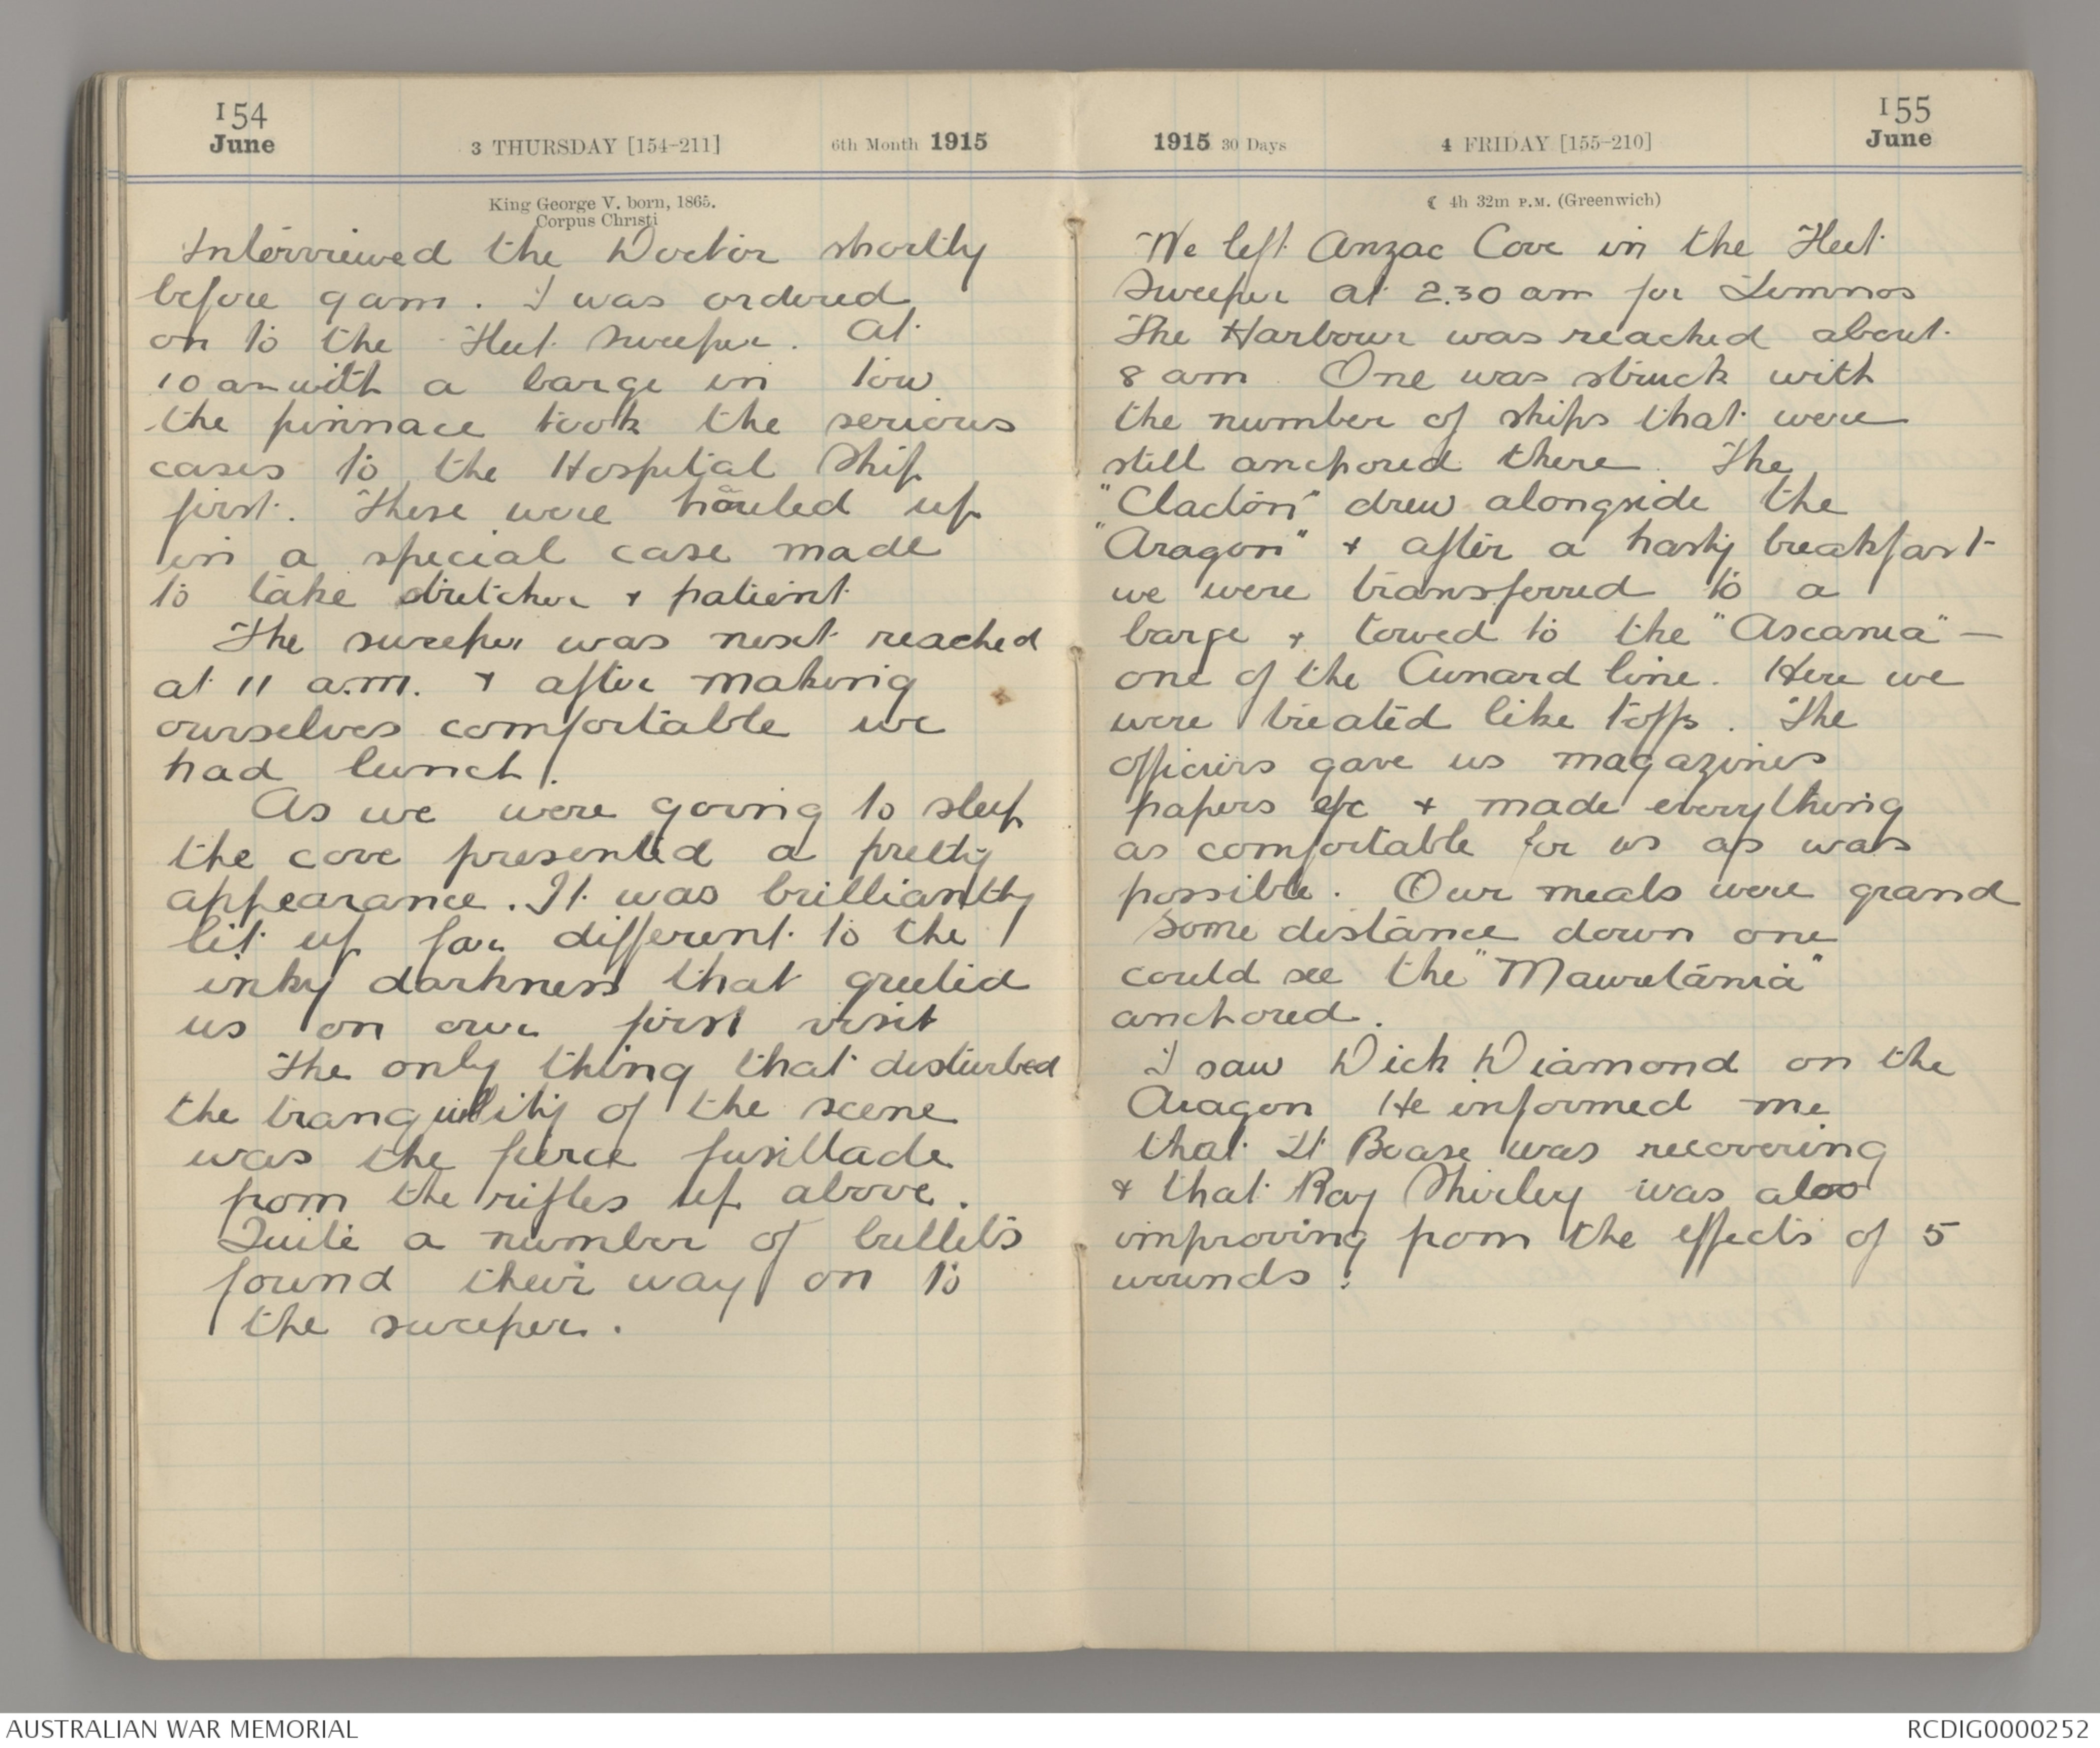 154
June
3 THURSDAY [154-211]
6th Month 1915
King George V. born, 1865.
Corpus Christi
Interviewed the Doctor shortly
before 9 am. I was ordered
on to the Fleet Sweeper. At
10 am with a barge in tow
the pinnace took the serious
cases to the Hospital Ship
first. These were hauled up
in a special case made
to take stretcher & patient
The sweeper was next reached
at 11 a.m. & after making
ourselves comfortable we
had lunch.
As we were going to sleep
the cove presented a pretty
appearance. It was brilliantly
lit up far different to the
inky darkness that greeted
us on our first visit
The only thing that disturbed
the tranquility of the scene
was the fierce fusillade
from the rifles up above.
Quite a number of bullets
found their way on to
the sweeper.
1915 30 Days
4 FRIDAY [155-210]
155
June
☾ 4h 32m P.M. (Greenwich)
We left Anzac Cove in the Fleet
Sweeper at 2.30 am for Lemnos
The Harbour was reached about
8 am. One was struck with
the number of ships that were
still anchored there. The
"Clacton" drew alongside the
"Aragon" & after a hasty breakfast
we were transferred to a
barge & towed to the "Ascania" —
one of the Cunard line. Here we
were treated like toffs. The
officers gave us magazines
papers etc & made everything
as comfortable for us as was
possible. Our meals were grand
Some distance down one
could see the "Mauretania"
anchored.
I saw Dick Diamond on the
Aragon He informed me
that Lt Boase was recovering
& that Ray Shirley was also
improving from the effects of 5
wounds.
AUSTRALIAN WAR MEMORIAL
RCDIG0000252